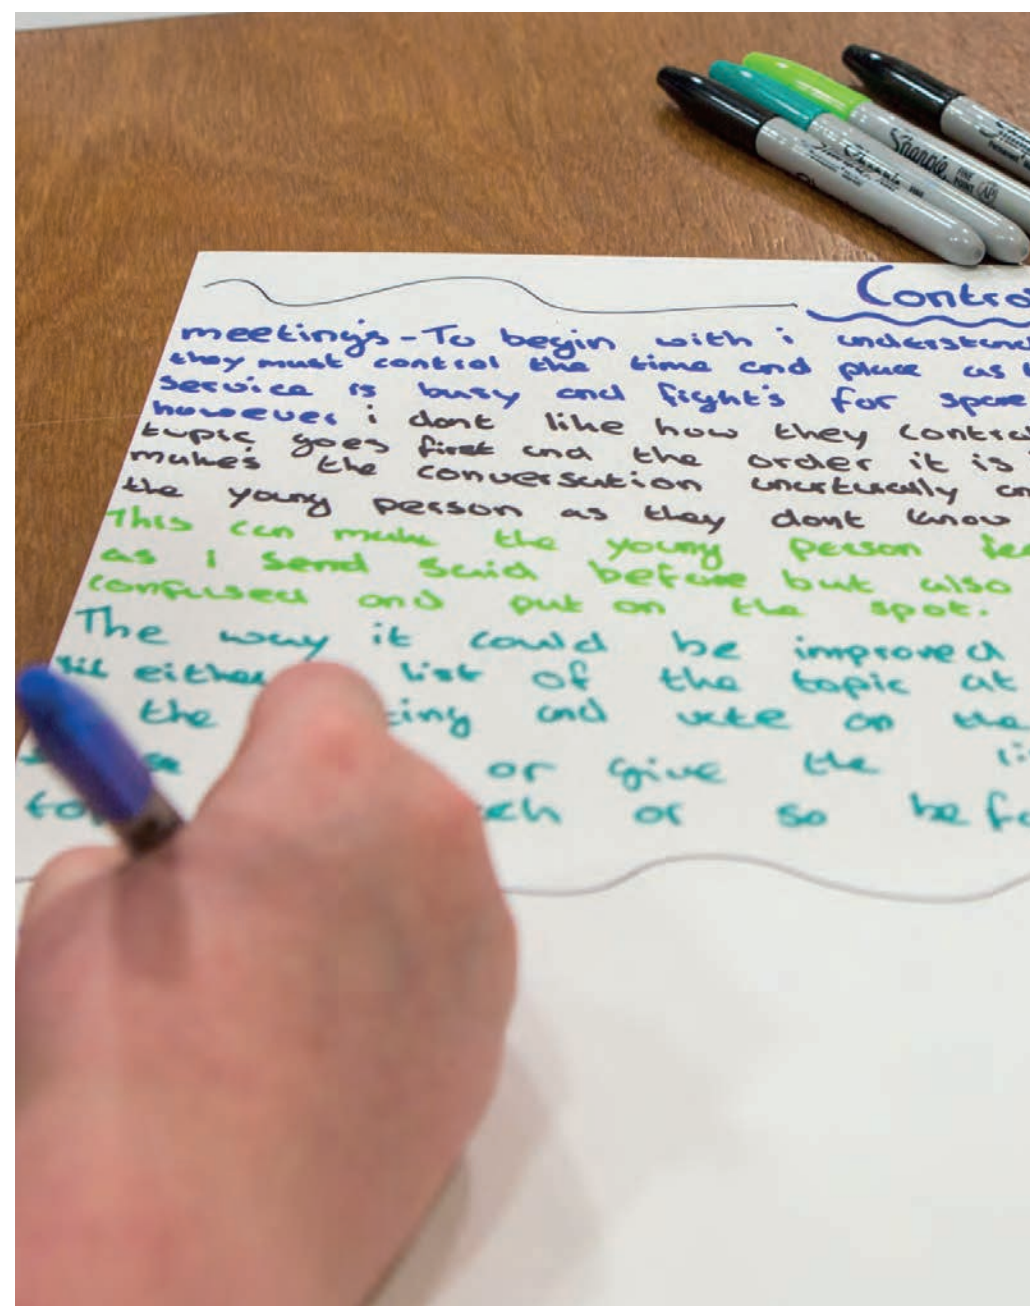 Sharpie
FINE
POINT
Contro
meeting's - To begin with i understand
they must control the time and place as
service is busy and fight's for space
however i dont like how they contro
topic goes first and the order it is
makes the conversation unarturally an
the young person as they dont know
This can make the young person fee
as i send said before but also
confused and put on the spot.
The way it could be improved
either list of the topic at
the ting and vote on the
or give the li
or so befo